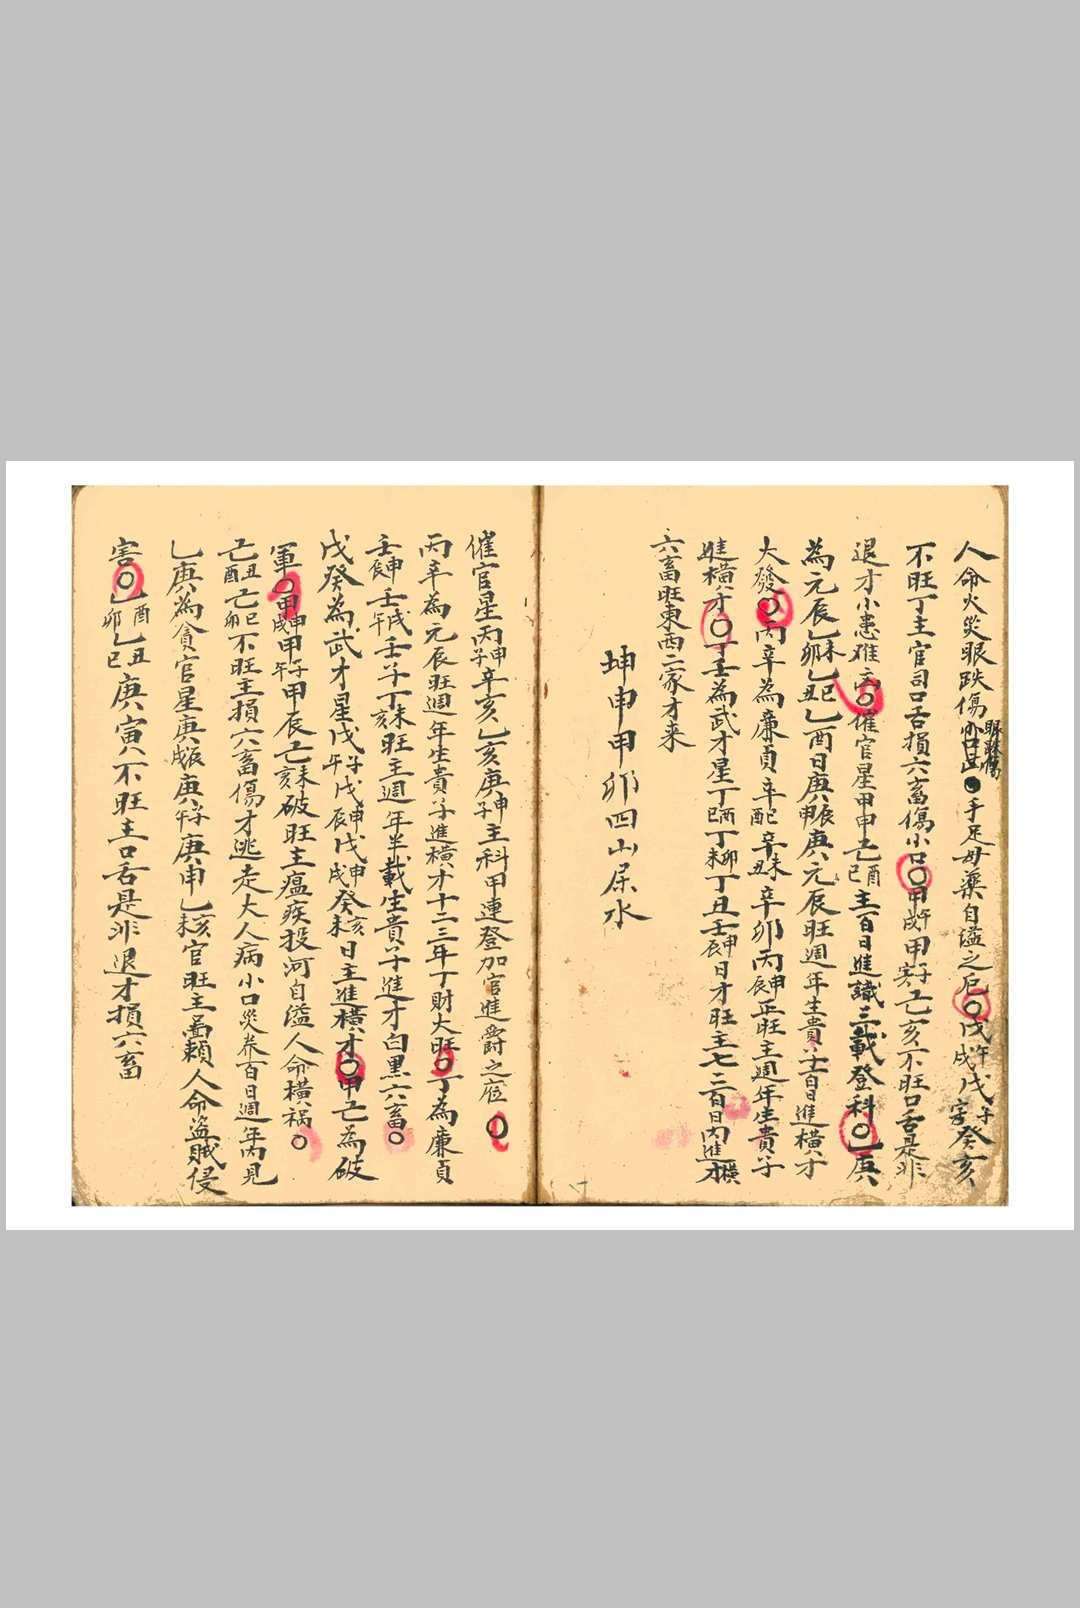 人命火災眼跌傷手足毋藥自謚之厄〇戊午戌戊子寅癸亥
不旺丁主官司口舌損六畜傷小口〇甲午戌甲子寅己亥不旺口舌是非
退才小患难〇催官星甲申己酉巳主百日進識三載登科〇乙庚
為元辰乙未卯乙巳丑乙酉日庚辰申庚元辰旺週年生貴子百日進横才
大發〇丙辛為廉貞辛巳酉辛未丑辛卯丙申辰正旺主週年生貴子
進横才〇丁壬為武才星丁酉巳丁卯未丁丑壬申辰日才旺主七二百日內進横才
六畜旺東西二家才来
坤申甲卯四山屎水
催官星丙申子辛亥乙亥庚申子主科甲連登加官進爵之应〇
丙辛為元辰旺週年生貴子進横才十二三年丁財大旺〇丁為廉貞
壬申辰壬戌午壬子丁未亥旺主週年半載生貴子進才白黑六畜〇
戊癸為武才星戊子午戊申辰戊申戌癸亥未日主進横才〇甲己為破
軍〇甲申戌甲子午甲辰己未亥破旺主瘟疾投河自溢人命横禍〇
己丑酉己巳卯不旺主損六畜傷才逃走大人病小口災叁百日週年內見
乙庚為貪官星庚辰戌庚子午庚申乙亥未官旺主人命盜賊侵
害〇乙酉卯乙丑巳庚寅不旺主口舌是非退才損六畜